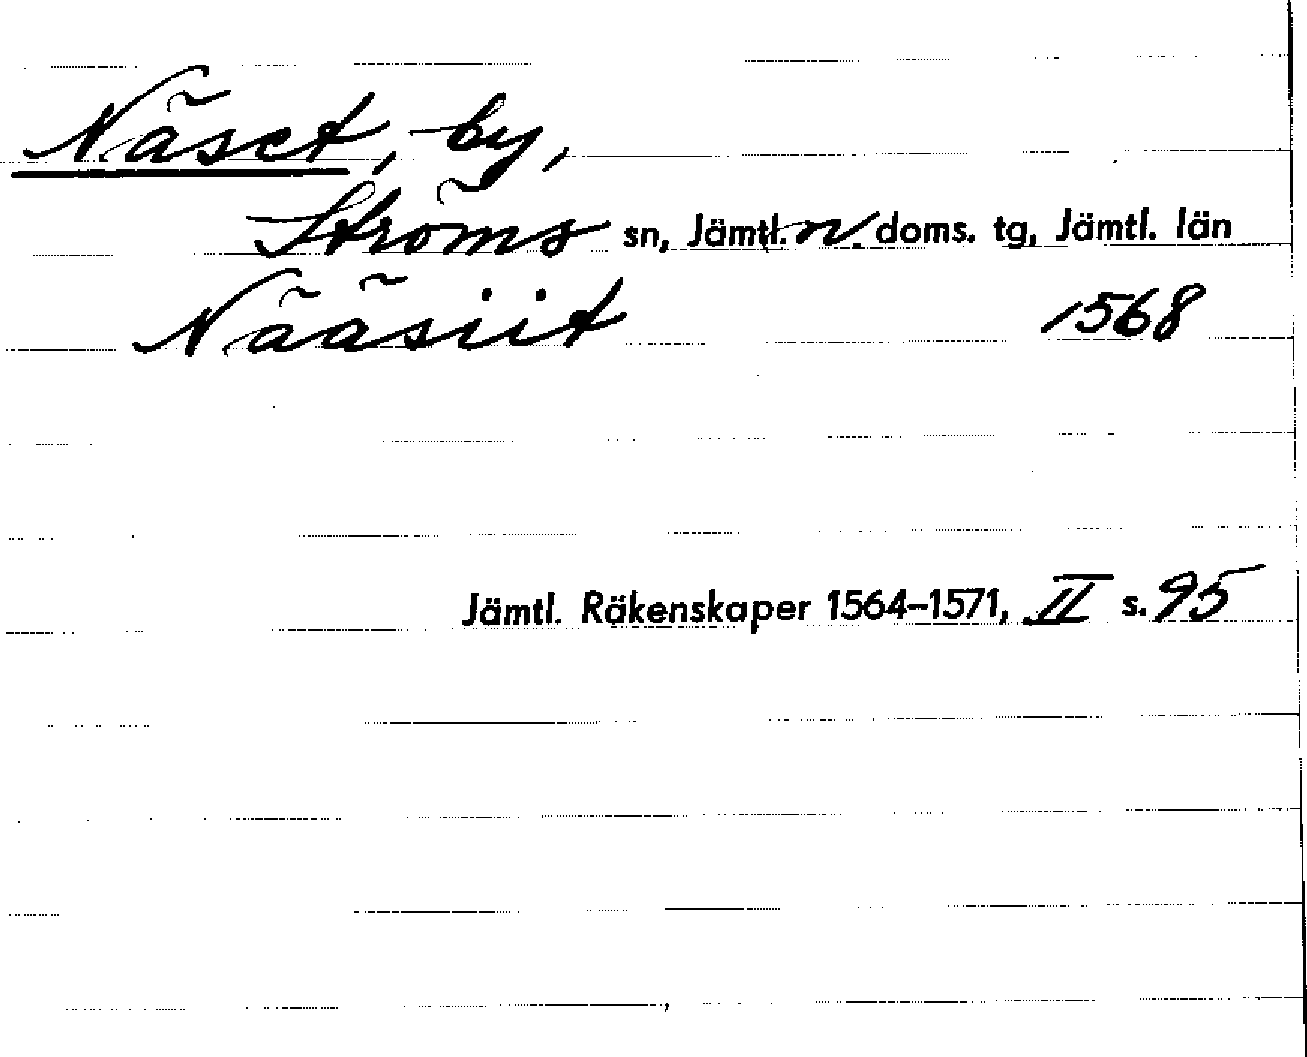 Näset, by,
Ströms sn, Jämtl. n. doms. tg, Jämtl. län
Nääsiit 1568
Jämtl. Räkenskaper 1564–1571, II s. 95